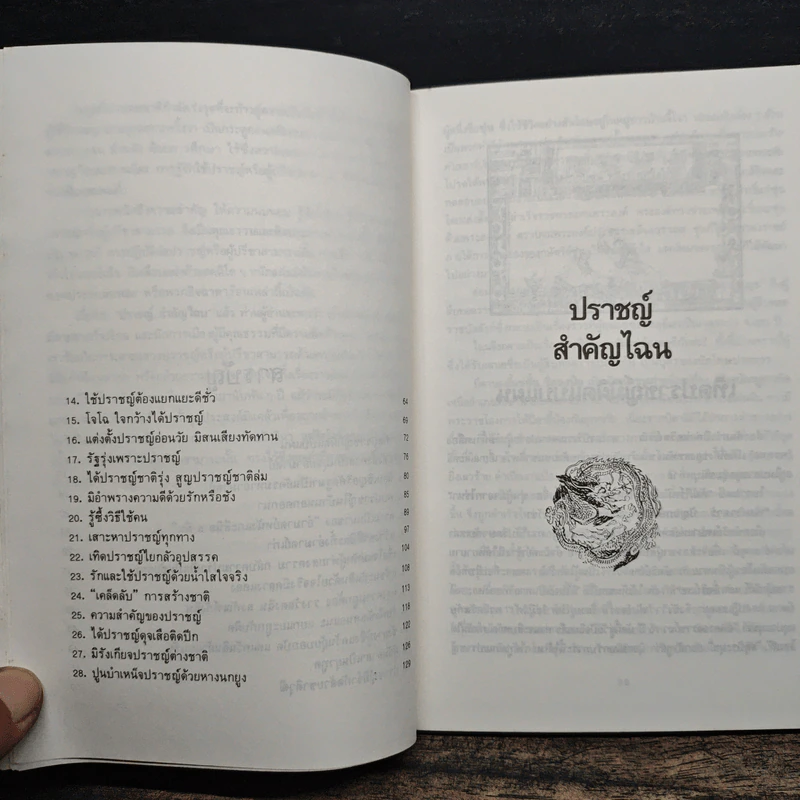 14. ใช้ปราชญ์ต้องแยกแยะดีชั่ว 64
15. โจโฉ ใจกว้างได้ปราชญ์ 69
16. แต่งตั้งปราชญ์อ่อนวัย มิสนเสียงทัดทาน 72
17. รัฐรุ่งเพราะปราชญ์ 76
18. ได้ปราชญ์ชาติรุ่ง สูญปราชญ์ชาติล่ม 80
19. มิอำพรางความดีด้วยรักหรือชัง 85
20. รู้ซึ้งวิธีใช้คน 89
21. เสาะหาปราชญ์ทุกทาง 97
22. เทิดปราชญ์ไยกลัวอุปสรรค 104
23. รักและใช้ปราชญ์ด้วยน้ำใสใจจริง 108
24. "เคล็ดลับ" การสร้างชาติ 113
25. ความสำคัญของปราชญ์ 118
26. ได้ปราชญ์ดุจเสือติดปีก 120
27. มิรังเกียจปราชญ์ต่างชาติ 126
28. ปูนบำเหน็จปราชญ์ด้วยหางนกยูง 129
ปราชญ์
สำคัญไฉน